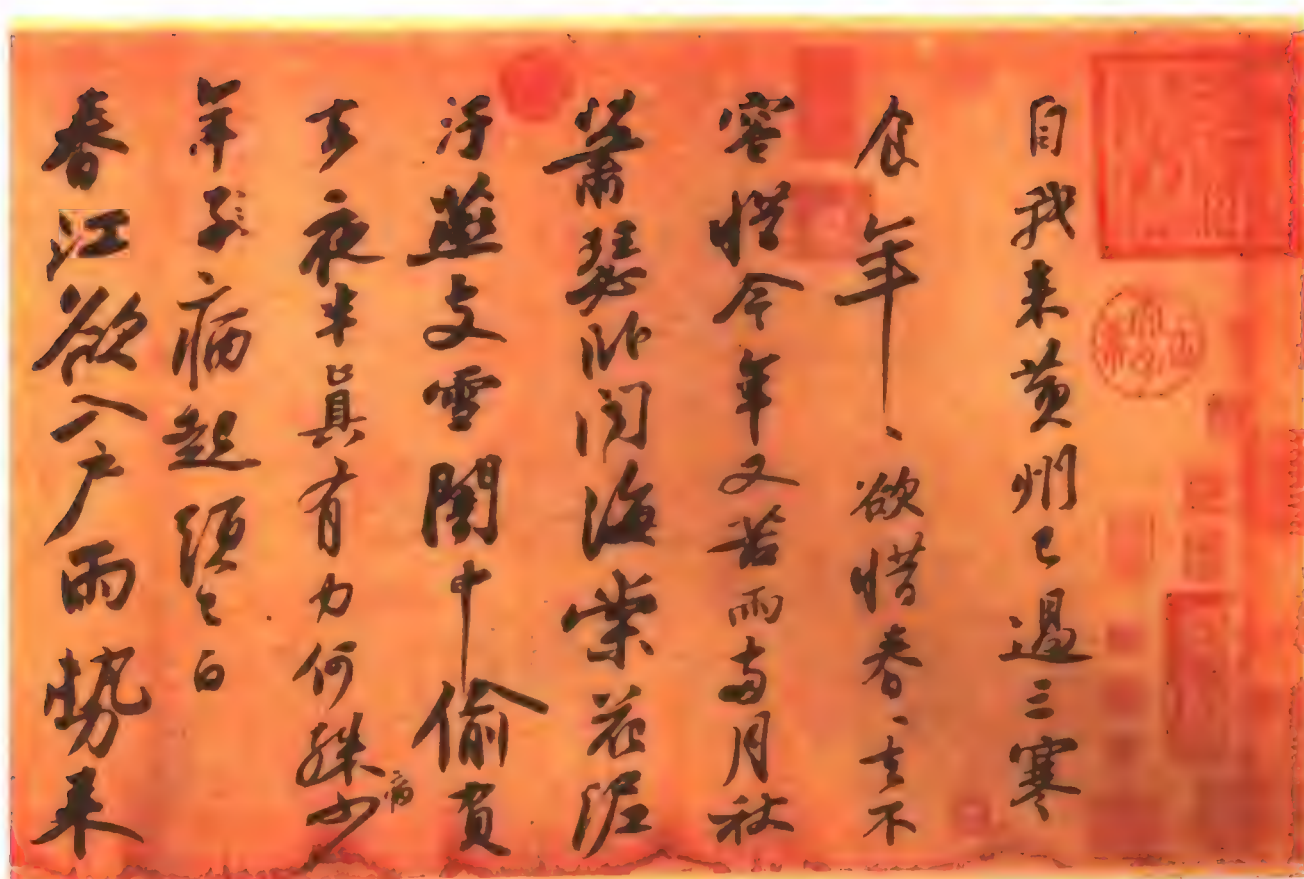 自我来黄州已過三寒
食年、欲惜春、去不
容惜今年又苦雨兩月秋
蕭瑟卧聞海棠花泥
汙燕支雪闇中偷負
去夜半真有力何殊少
病
年子病起須已白
春江欲入户雨勢来